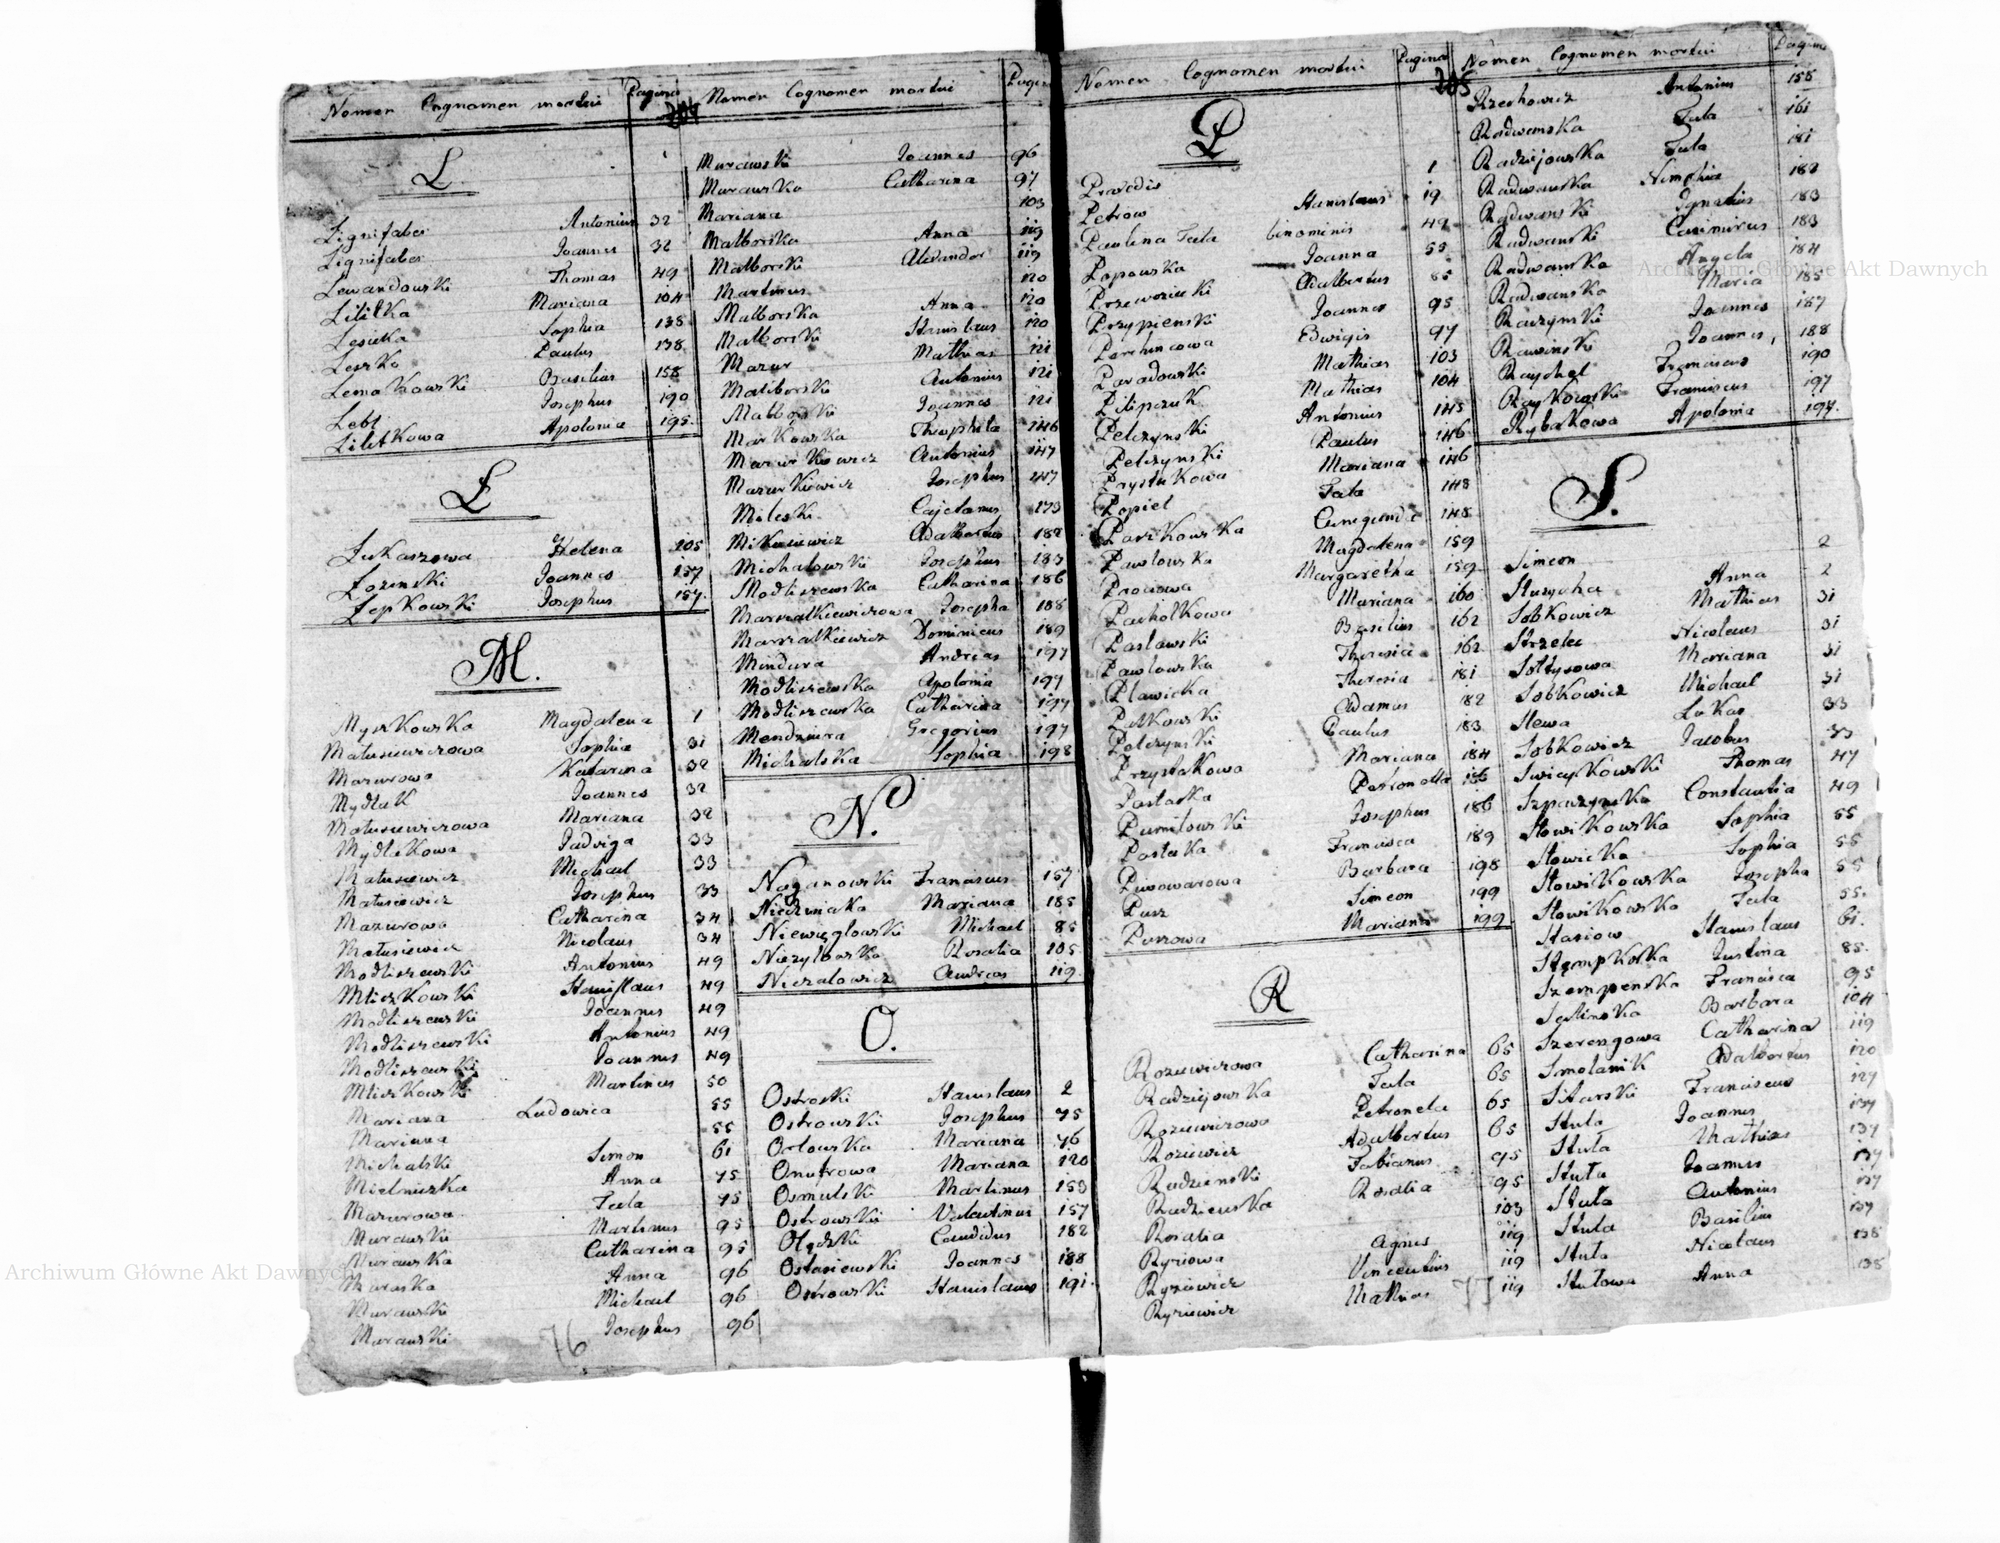 Nomen Cognomen mortui Pagina
204
L.
Lignifaber Antonius 32
Lignifaber Joannes 32
Lewandowski Thomas 49
Lilitka Mariana 104
Lesicka Sophia 138
Leszko Paulus 138
Basilius 158
Lebi Josephus 190
Lilitkowa Apolonia 195.
Ł
Łukaszowa Helena 105
Łozinski Joannes 157
Łepkowski Josephus 157.
M.
Myszkowska Magdalena 1
Matusiewiczowa Sophia 31
Mazurowa Katarina 32
Mydlak Joannes 32
Matusiewiczowa Mariana 32
Mydlakowa Jadviga 33
Matusiewicz Michael 33
Matusiewicz Josephus 33
Mazurowa Catharina 34
Matusiewicz Nicolaus 34
Modliszewski Antonius 49
Mliczkowski Stanislaus 49
Modliszewski Joannes 49
Modliszewski Antonius 49
Modliszewski Joannes 49
Mliczkowski Martinus 50
Mariana Ludovica 55
Mariana 55
Michalski Simon 61
Mielniczka Anna 75
Mazurowa Tecla 75
Murawski Martinus 95
Murawska Catharina 95
Murawska Anna 96
Murawski Michael 96
Murawski Josephus 96
76
Nomen Cognomen mortui Pagin
Murawski Joannes 96
Murawska Catharina 97
Mariana 103
Malborska Anna 119
Malborski Alexander 119
Martinus 120
Malborska Anna 120
Malborski Stanislaus 120
Mazur Mathias 121
Malborski Antonius 121
Malborski Joannes 121
Markowska Theophila 146
Mazurkiewicz Antonius 147
Mazurkiewicz Josephus 147
Mileski Cajetanus 173
Mikusiewicz Adalbertus 182
Michalowski Josephus 183
Modliszewska Catharina 186
Marszalkiewiczowa Josepha 188
Marszalkiewicz Dominicus 189
Mindura Andreas 197
Modliszewska Apolonia 197
Modliszewska Catharina 197
Mendziura Gregorius 197
Michalska Sophia 198
N.
Naganowski Franciscus 157
Niedzwicka Mariana 185
Niewęglowski Michael 85
Niezyborska Rosalia 105
Niezalowicz Andreas 119.
O.
Ostroski Stanislaus 2
Ostrowski Josephus 75
Orlowska Mariana 76
Onufrowa Mariana 120
Osmulski Martinus 153
Ostrowski Valentinus 157
Olędzki Candidus 182
Ostasiewski Joannes 188
Ostrowski Stanislaus 191.
Nomen Cognomen mortui Pagina
205
P
Praxedis 1
Petrow Stanislaus 19
Paulina Tecla binominis 49
Popowska Joanna 55
Przewoznicki Adalbertus 85
Przypienski Joannes 95
Parchincowa Edvigis 97
Paradowski Mathias 103
Pilipczuk Mathias 104
Pelczynski Antonius 145
Pelczynski Paulus 146
Przystakowa Mariana 146
Popiel Tecla 148
Paszkowska Cunegunda 148
Pawlowska Magdalena 159
Pronowa Margaretha 159
Pacholkowa Mariana 160
Paslawski Basilius 162
Pawlowska Theresia 162
Plawicka Theresia 181
Pitkowski Adamus 182
Pelczynski Paulus 183
Przystakowa Mariana 184
Pastaska Petronella 186
Pumilowski Josephus 186
Pastuska Francisca 189
Piwowarowa Barbara 198
Pusz Simeon 199
Puszowa Mariana 199.
R
Roziewiczowa Catharina 65
Radziejowska Tecla 65
Roziewiczowa Petronela 65
Roziewicz Adalbertus 65
Radzienski Fabianus 95
Radzienska Rosalia 95
Rosalia 103
Ryziowa Agnes 119
Ryziewicz Vincentius 119
Ryziewicz Mathias 119
77
Nomen Cognomen mortui Pagina
Rzechowicz Antonius 155
Radwanska Tecla 161
Radziejowska Tecla 181
Radwanska Nimphia 182
Radwanski Ignatius 183
Radwanski Casimirus 183
Radwanska Angela 184
Radwanska Maria 185
Raczynski Joannes 187
Rawinski Joannes, 188
Raychel Franciscus 190
Raykowski Franciscus 197
Rybakowa Apolonia 197.
S.
Simeon 2
Skuzycha Anna 2
Sobkowicz Mathias 31
Strzelec Nicolaus 31
Soltysowa Mariana 31
Sobkowicz Michael 31
Slewa Lukas 33
Sobkowicz Jacobus 33
Swieykowski Thomas 47
Szpaczynska Constantia 49
Slowikowska Sophia 55
Slowicka Sophia 55
Slowikowska Josepha 55
Slowikowska Tecla 55.
Stasiow Stanislaus 61.
Stąmpkoska Justina 85.
Szempenska Francisca 95
Seslinska Barbara 104
Szerengowa Catharina 119
Smolanik Adalbertus 120
Sitarski Franciscus 127
Stula Joannes 137
Stula Mathias 137
Stula Joannes 137
Stula Antonius 137
Stula Basilius 137
Stula Nicolaus 138
Stulowa Anna 138
Archiwum Główne Akt Dawnych
Archiwum Główne Akt Dawnych